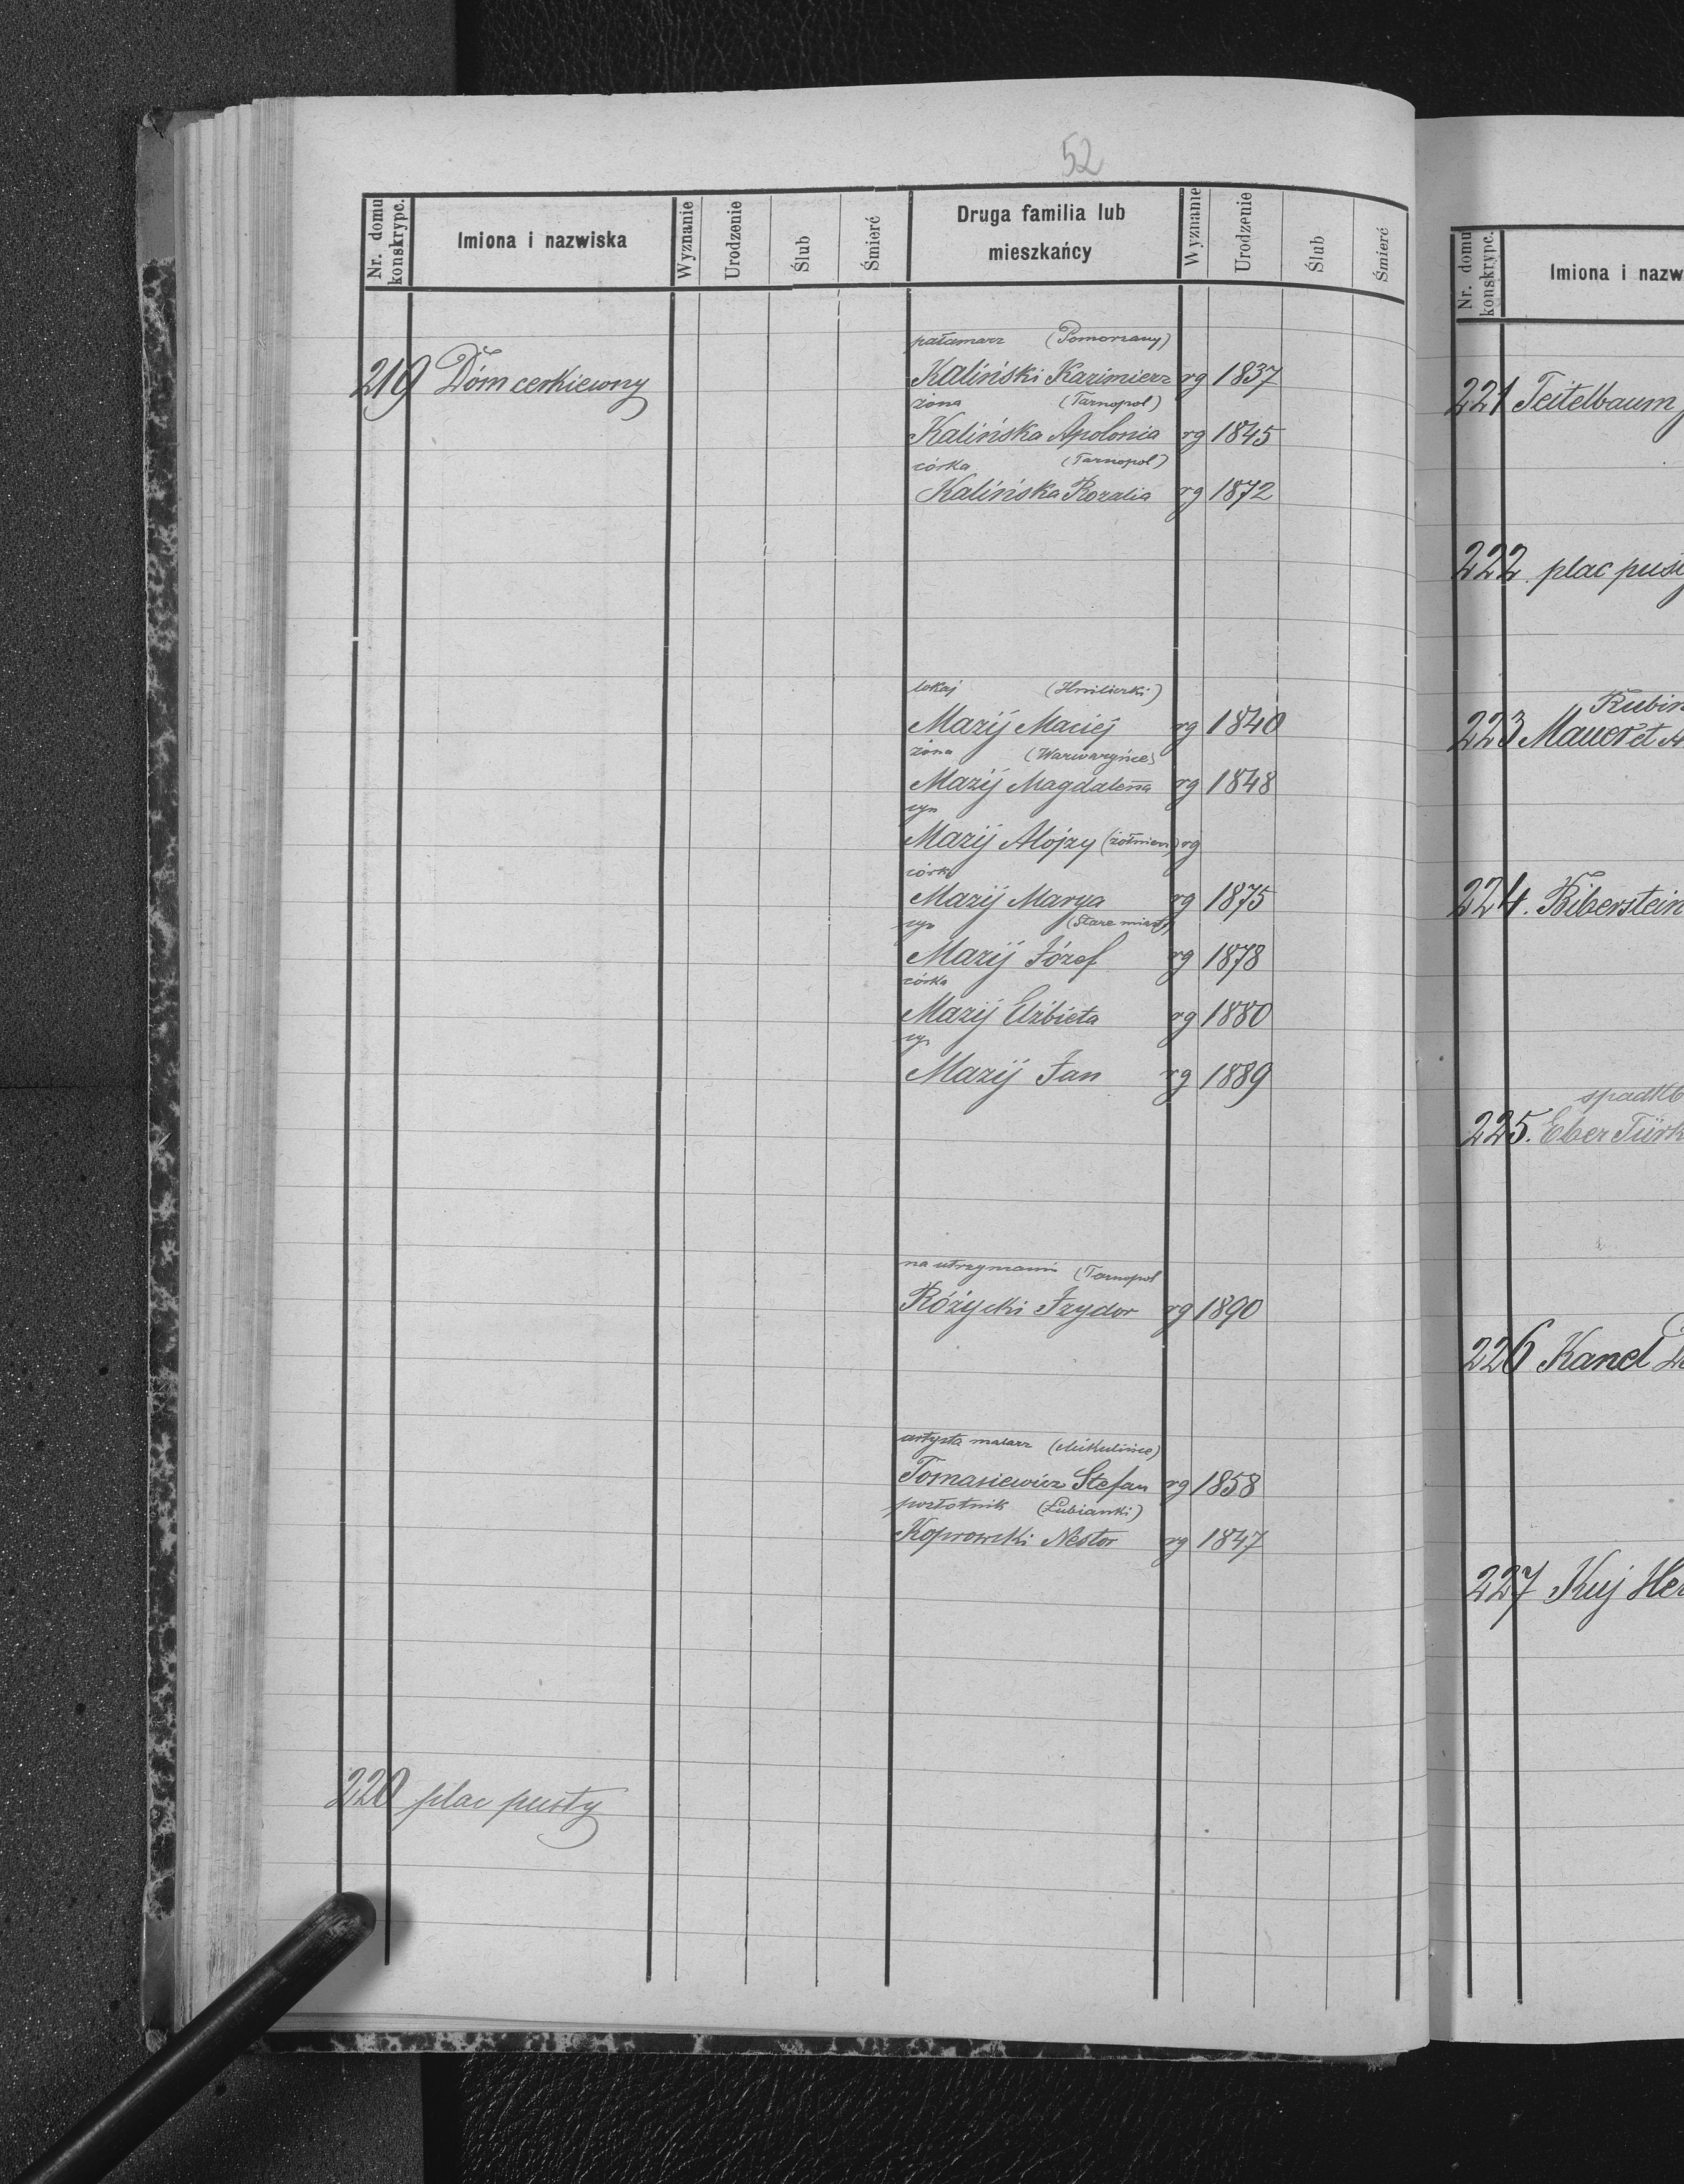 52
Nr. domu konskrypc.
Imiona i nazwiska
Wyznanie
Urodzenie
Ślub
Śmierć
Druga familia lub
mieszkańcy
Wyznanie
Urodzenie
Ślub
Śmierć
pałamarz (Pomorzany)
219 Dóm cerkiewny Kaliński Kazimierz rg 1837
żona (Tarnopol)
Kalińska Apolonia rg 1845
córka (Tarnopol)
Kalińska Rozalia rg 1872
lokaj (Hniliczki)
Mazij Maciej rg 1840
żona (Warwaryńce)
Mazij Magdalena rg 1848
syn
Mazij Alojzy (żołnierz) rg
córka
Mazij Marya rg 1875
syn (Stare miasto)
Mazij Józef rg 1878
córka
Mazij Elżbieta rg 1880
syn
Mazij Jan rg 1889
na utrzymaniu (Tarnopol
Różycki Izydor rg 1890
artysta malarz (Mikulińce)
Tomasiewicz Stefan rg 1858
pozłotnik (Łubianki)
Koprowski Nestor rg 1847
220 plac pusty
Nr. domu konskrypc.
Imiona i nazw
221 Teitelbaum
222. plac pust
Rubin
223 Mauer et
224. Biberstein
spadkb
225. Eber Türk
226 Kanel
227 Kuj Her